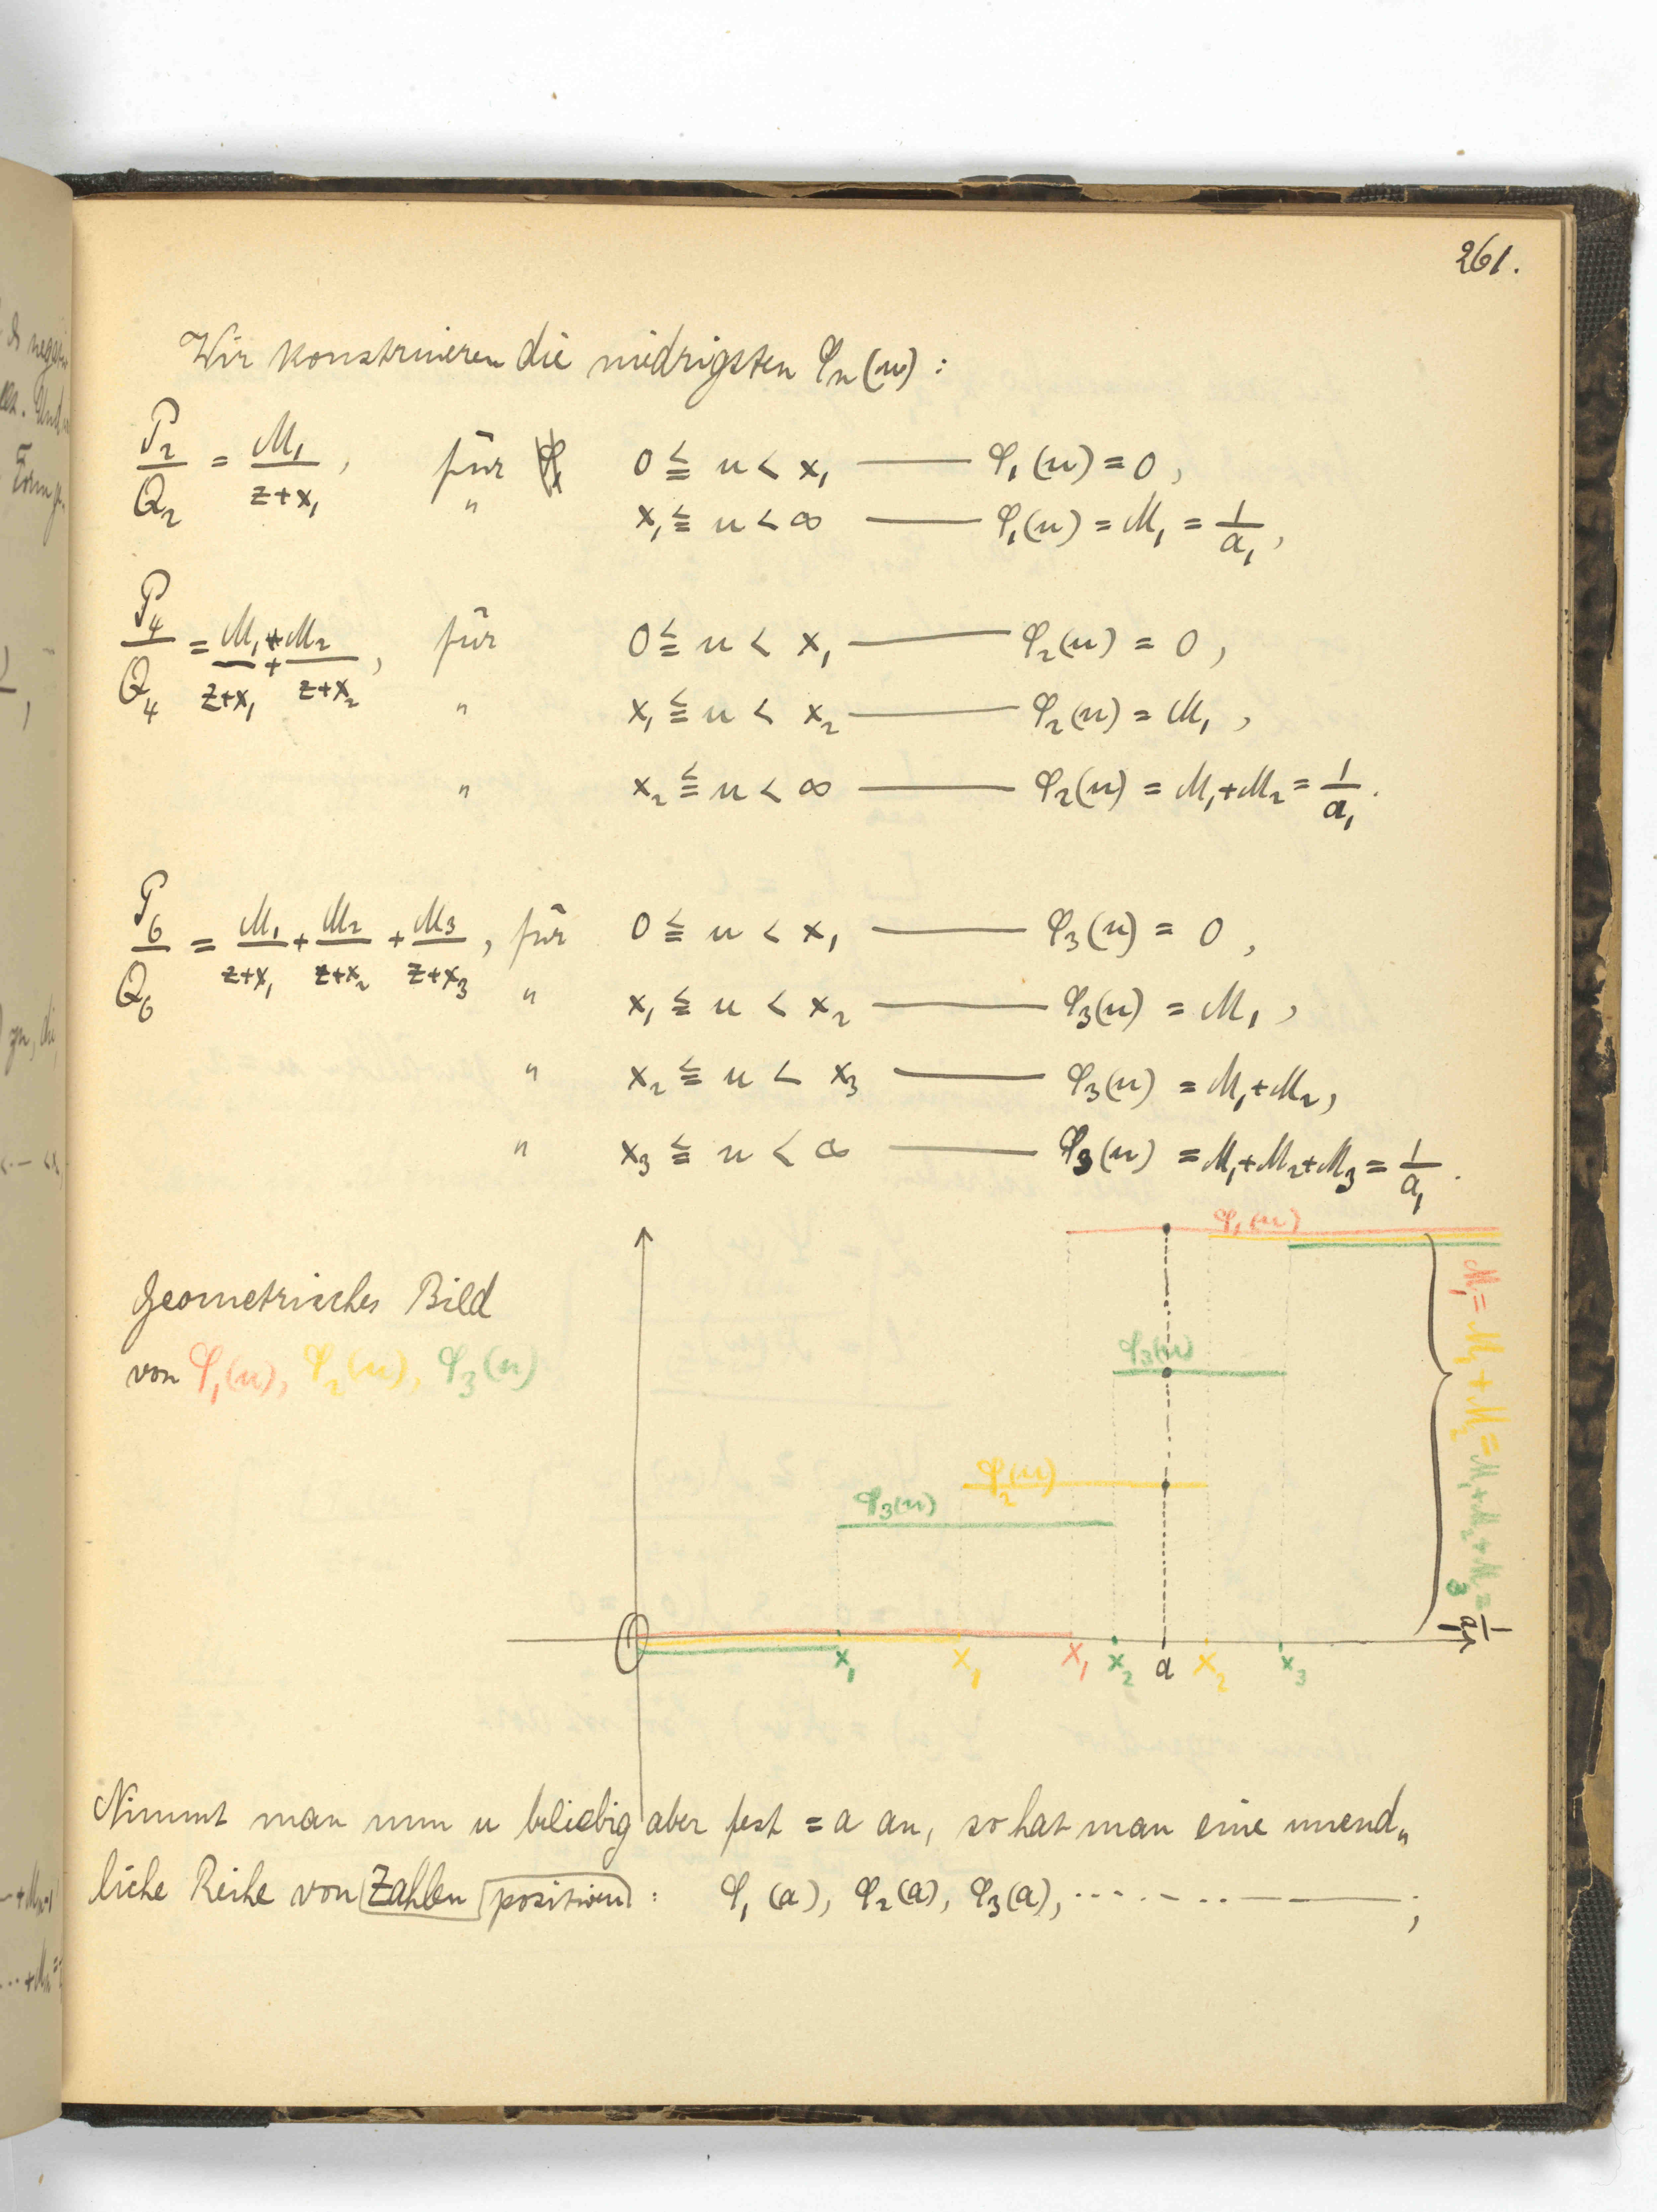 261.
Wir konstruieren die niedrigsten φₙ(u):
P₂/Q₂ = M₁/(z+x₁), für 0 ≦ u < x₁ —— φ₁(u) = 0,
" x₁ ≦ u < ∞ —— φ₁(u) = M₁ = 1/a₁,
P₄/Q₄ = M₁/(z+x₁) + M₂/(z+x₂), für 0 ≦ u < x₁ —— φ₂(u) = 0,
" x₁ ≦ u < x₂ —— φ₂(u) = M₁,
" x₂ ≦ u < ∞ —— φ₂(u) = M₁+M₂ = 1/a₁.
P₆/Q₆ = M₁/(z+x₁) + M₂/(z+x₂) + M₃/(z+x₃), für 0 ≦ u < x₁ —— φ₃(u) = 0,
" x₁ ≦ u < x₂ —— φ₃(u) = M₁,
" x₂ ≦ u < x₃ —— φ₃(u) = M₁+M₂,
" x₃ ≦ u < ∞ —— φ₃(u) = M₁+M₂+M₃ = 1/a₁.
φ₁(u)
Geometrisches Bild
von φ₁(u), φ₂(u), φ₃(u)
φ₃(u)
φ₂(u)
φ₃(u)
M₁ = M₁+M₂ = M₁+M₂+M₃ = 1/a₁
O x₁ x₁ x₁ x₂ a x₂ x₃
Nimmt man nun u beliebig aber fest = a an, so hat man eine unend„
liche Reihe von Zahlen positiven: φ₁(a), φ₂(a), φ₃(a), ........ ——;